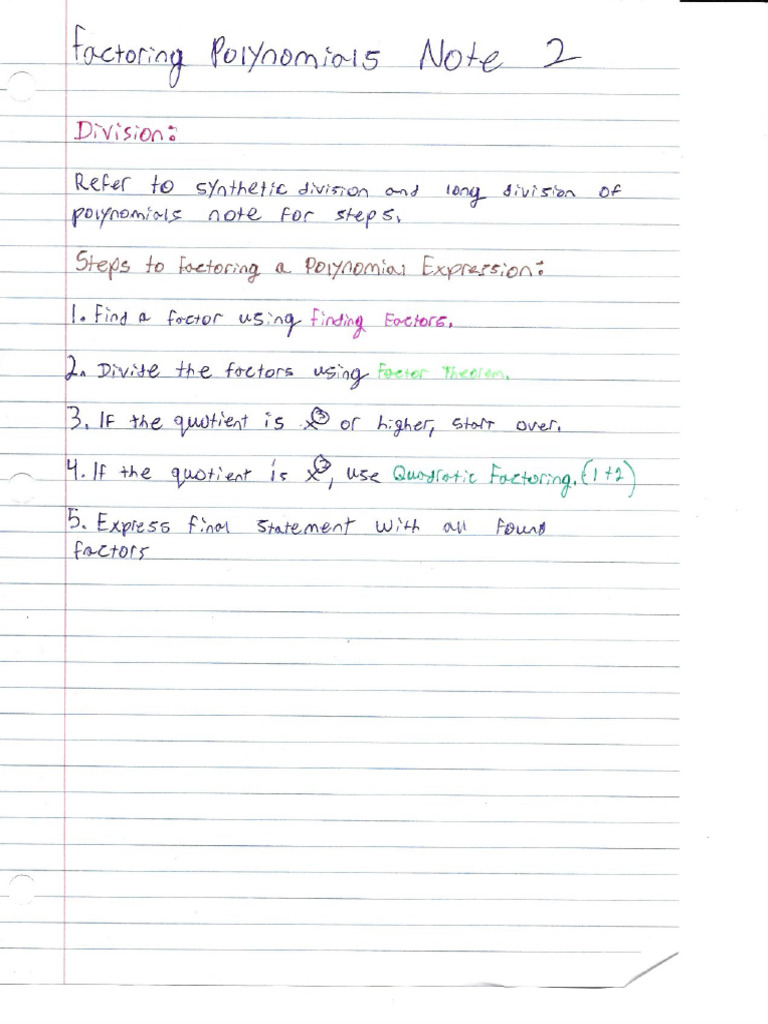 Factoring Polynomials Note 2
Division:
Refer to synthetic division and long division of
polynomials note for steps.
Steps to factoring a Polynomial Expression:
1. Find a factor using Finding Factors.
2. Divide the factors using Factor Theorem.
3. If the quotient is x³ or higher, start over.
4. If the quotient is x², use Quadratic Factoring. (1+2)
5. Express final statement with all found
factors